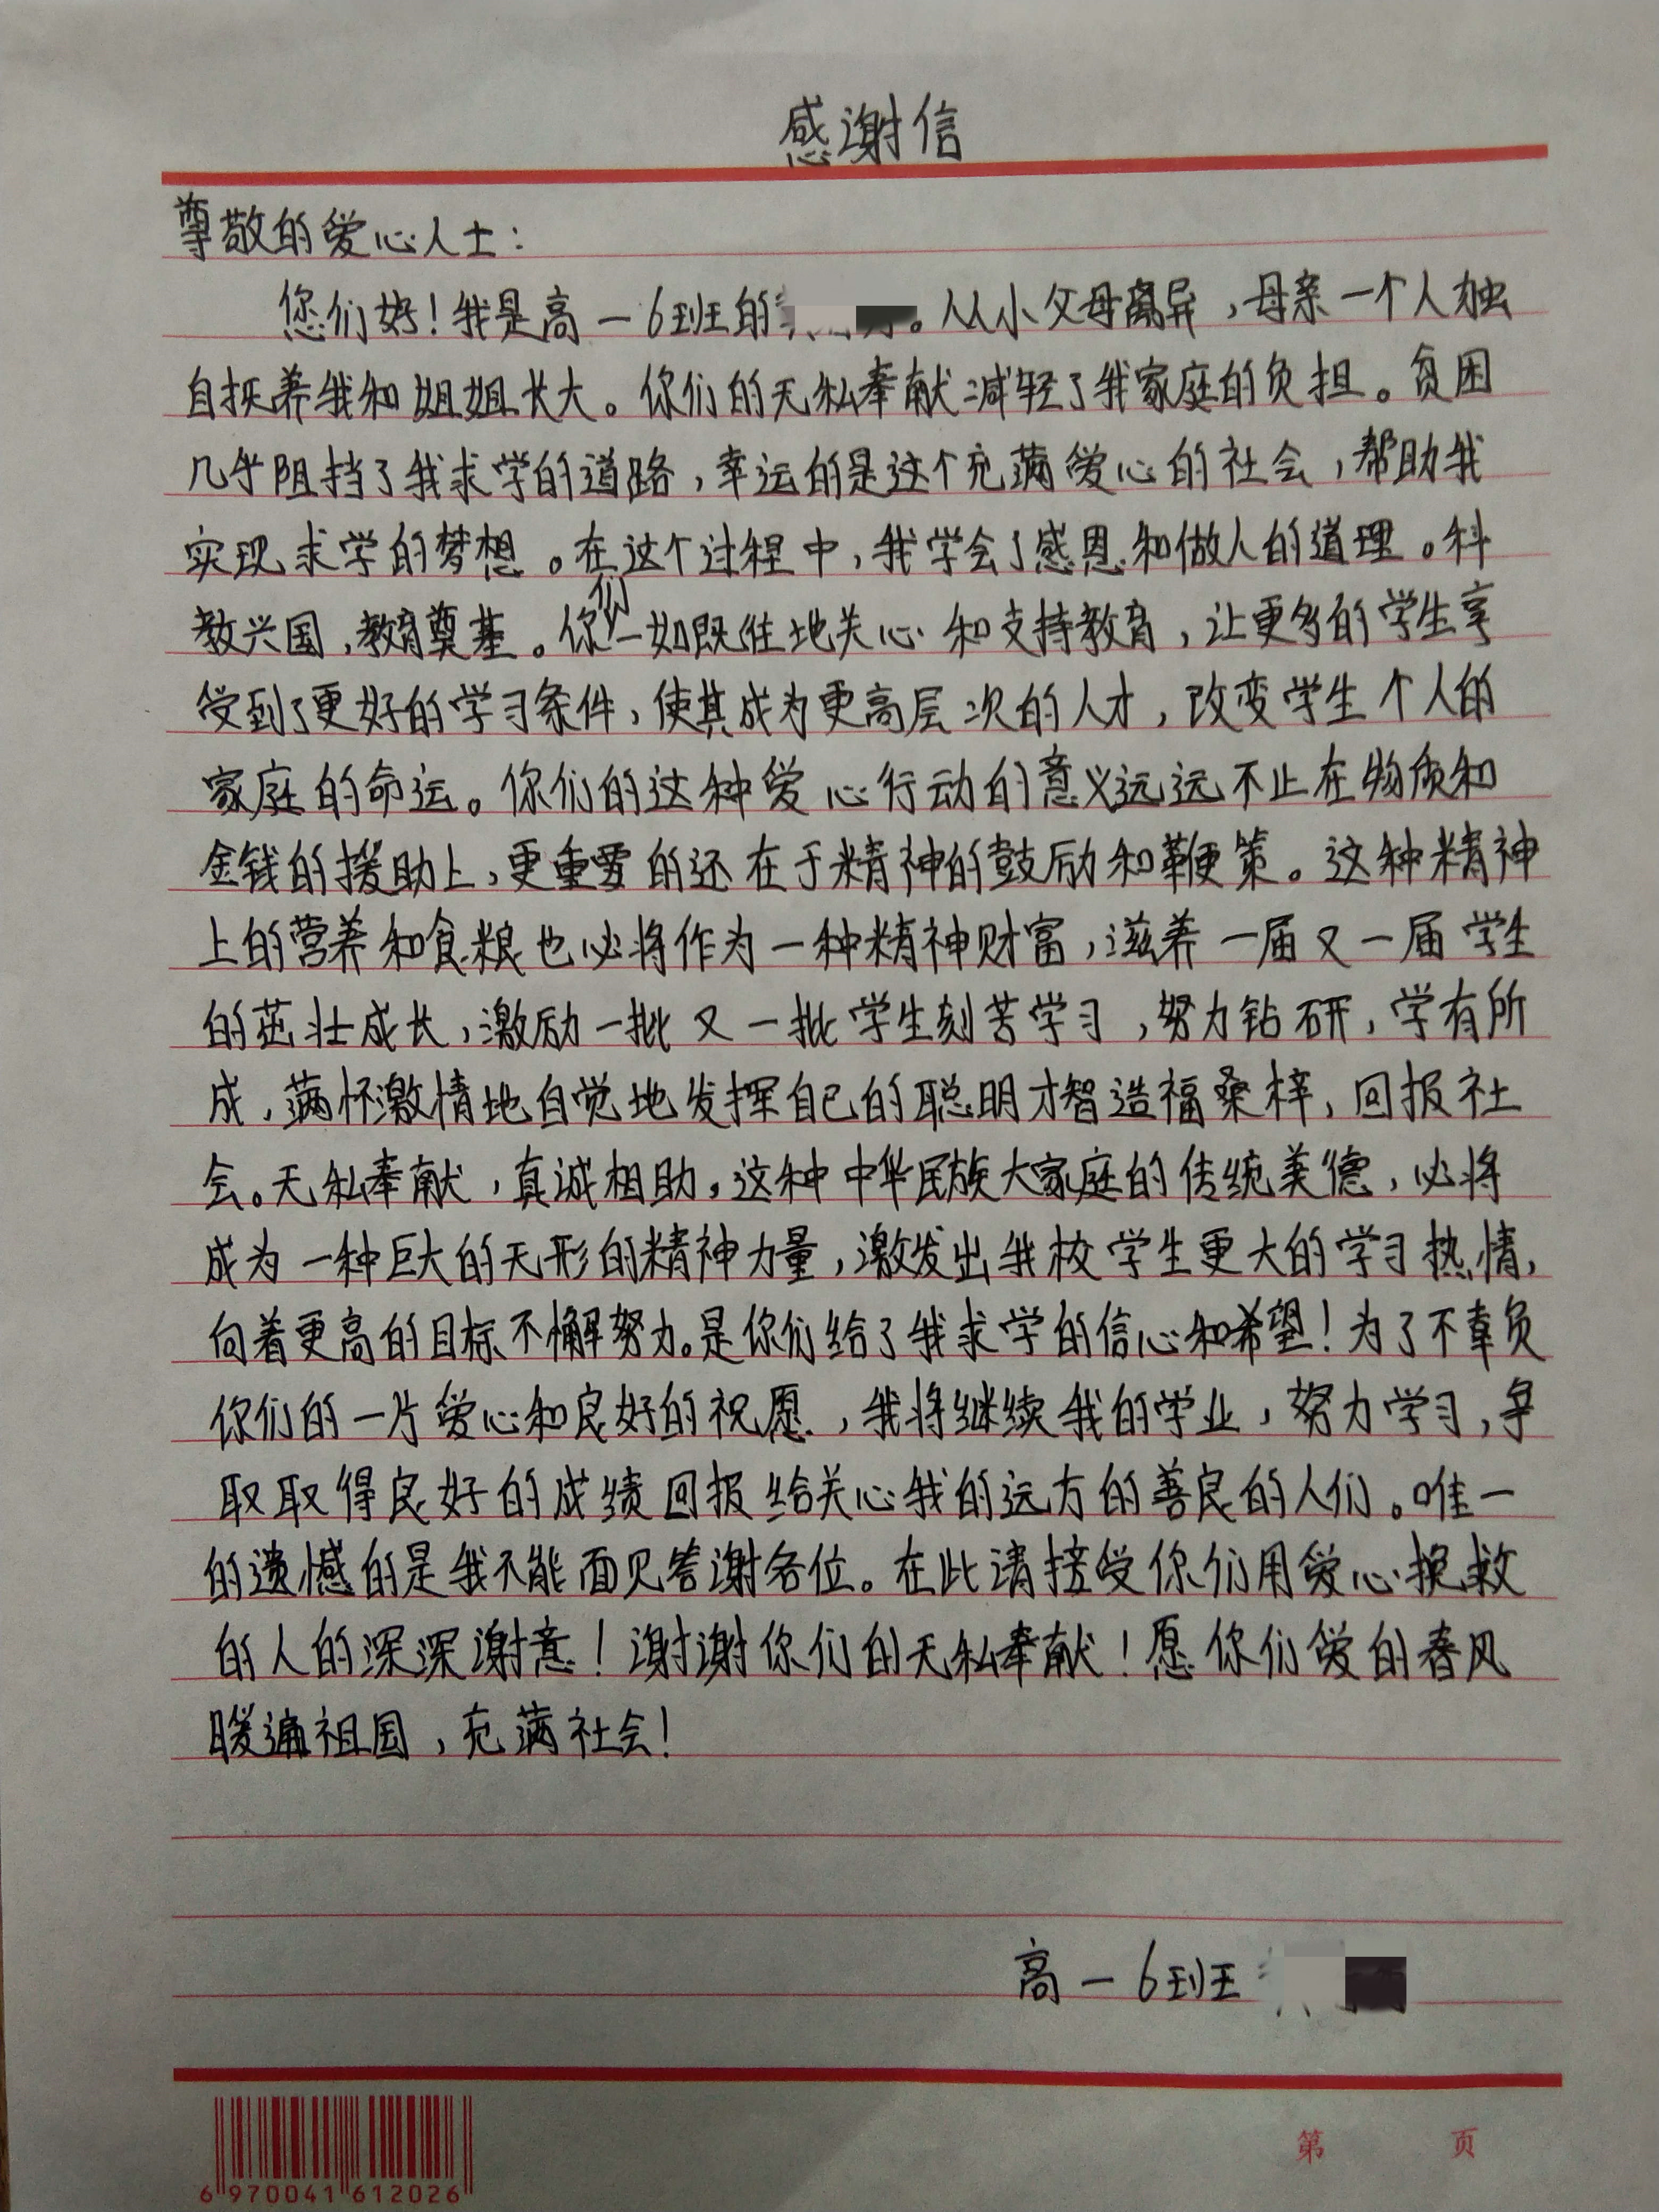 感谢信
尊敬的爱心人士：
您们好！我是高一6班的 。从小父母离异，母亲一个人独
自抚养我和姐姐长大。你们的无私奉献减轻了我家庭的负担。贫困
几乎阻挡了我求学的道路，幸运的是这个充满爱心的社会，帮助我
实现求学的梦想。在这个过程中，我学会了感恩和做人的道理。科
教兴国，教育奠基。你们一如既往地关心和支持教育，让更多的学生享
受到了更好的学习条件，使其成为更高层次的人才，改变学生个人的
家庭的命运。你们的这种爱心行动的意义远远不止在物质和
金钱的援助上，更重要的还在于精神的鼓励和鞭策。这种精神
上的营养和食粮也必将作为一种精神财富，滋养一届又一届学生
的茁壮成长，激励一批又一批学生刻苦学习，努力钻研，学有所
成，满怀激情地自觉地发挥自己的聪明才智造福桑梓，回报社
会。无私奉献，真诚相助。这种中华民族大家庭的传统美德，必将
成为一种巨大的无形的精神力量，激发出我校学生更大的学习热情，
向着更高的目标不懈努力。是你们给了我求学的信心和希望！为了不辜负
你们的一片爱心和良好的祝愿，我将继续我的学业，努力学习，争
取取得良好的成绩回报给关心我的远方的善良的人们。唯一
的遗憾的是我不能面见答谢各位。在此请接受你们用爱心挽救
的人的深深谢意！谢谢你们的无私奉献！愿你们爱的春风
暖遍祖国，充满社会！
高一6班
第 页
6 970041 612026